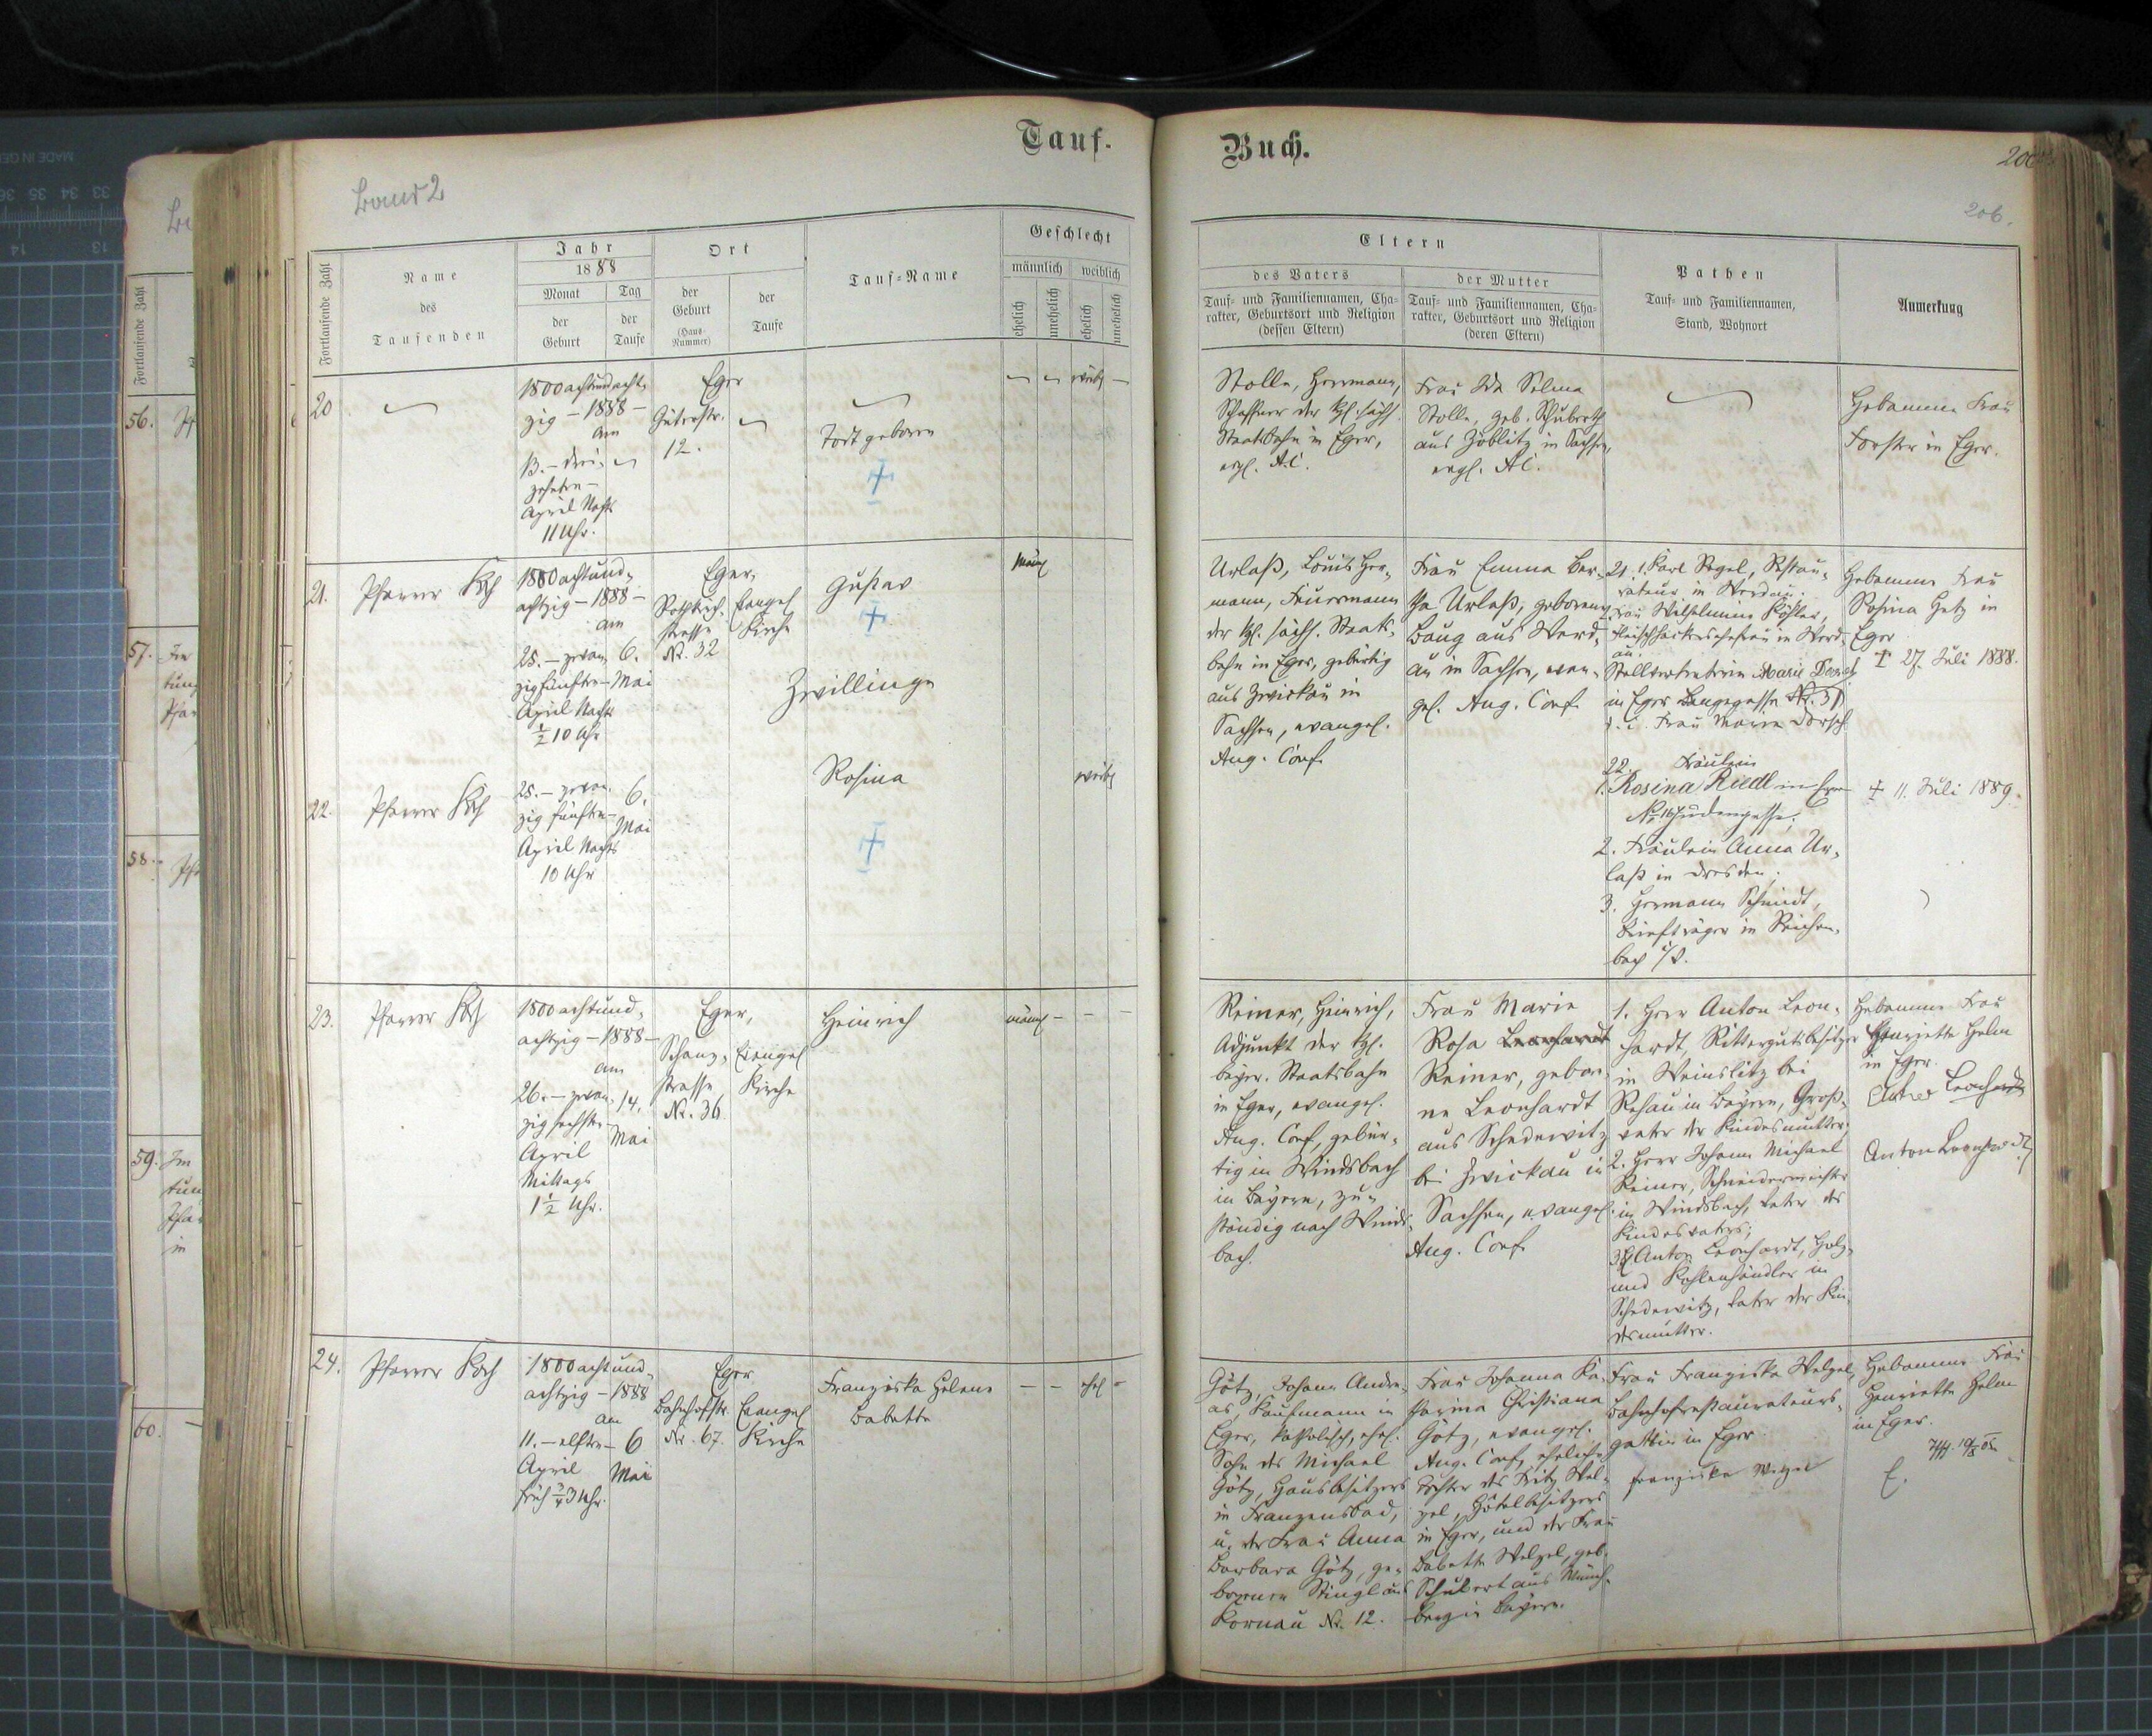 Tauf-
Buch.
Band 2
206.
Fortlaufende Zahl
Name
des
Taufenden
Jahr
1888
Monat
der
Geburt
Tag
der
Taufe
Ort
der
Geburt
(Haus-
Nummer)
der
Taufe
Tauf-Name
Geschlecht
männlich
weiblich
ehelich
unehelich
ehelich
unehelich
Eltern
des Vaters
Tauf- und Familiennamen, Cha-
rakter, Geburtsort und Religion
(dessen Eltern)
der Mutter
Tauf- und Familiennamen, Cha-
rakter, Geburtsort und Religion
(deren Eltern)
Pathen
Tauf- und Familiennamen,
Stand, Wohnort
Anmerkung
20
1800 achtundacht-
zig - 1888 -
am
13. - drei-
zehnten -
April Nachts
11 Uhr.
Eger
Güterstr.
12.
Todt geboren
weibl
Stolle, Herrmann,
Schaffner der kgl. sächs.
Staatsbahn in Eger,
evgl. A.C.
Frau Ida Selma
Stolle, geb. Schuberth
aus Zöblitz in Sachsen,
evgl. A.C.
Hebamme Frau
Forster in Eger.
21.
Pfarrer Koch
1800 achtund-
achtzig - 1888 -
am
25. - zwan-
zigfünften -
April Nachts
½ 10 Uhr
6.
Mai
Eger,
strasse
Nr. 32
Evangel
Kirche
Gustav
Zwillinge
männl
Urlaß, Louis Her-
mann, Feuermann
der kgl. sächs. Staats-
bahn in Eger, gebürtig
aus Zwickau in
Sachsen, evangel.
Aug. Conf.
Frau Emma Ber-
tha Urlaß, geborene
Baug aus Werd-
au in Sachsen, evan-
gel. Aug. Conf.
21. 1. Karl Vogel, Restau-
rateur in Werdau.
Frau Wilhelmine Köhler,
Fleischhackersehefrau in Werd-
au.
Stellvertreterin Marie Dorsch
in Eger Langegasse Nr. 31
d. i. Frau Maria Dorsch.
Hebamme Frau
Rosina Hetz in
Eger
† 27. Juli 1888.
22.
Pfarrer Koch
25. - zwan-
zig fünften -
April Nachts
10 Uhr
6.
Mai
Rosina
weibl
22. Fräulein
1. Rosina Riedl in Eger
No 16 Judengasse;
2. Fräulein Anna Ur-
laß in Dresden;
3. Hermann Schmidt,
Briefträger in Reichen-
bach i/V.
† 11. Juli 1889.
23.
Pfarrer Koch
1800 achtund-
achtzig - 1888 -
am
26. - zwan-
zigsechsten -
April
Mittags
1½ Uhr.
14.
Mai
Eger,
Schanz-
strasse
Nr. 36
Evangel
Kirche
Heinrich
männl
Reiner, Heinrich,
Adjunkt der kgl.
bayer. Staatsbahn
in Eger, evangel.
Aug. Conf., gebür-
tig in Windsbach
in Bayern, zu-
ständig nach Winds-
bach.
Frau Marie
Rosa Leonhardt
Reiner, gebore-
ne Leonhardt
aus Schedewitz
bei Zwickau in
Sachsen, evangel.
Aug. Conf.
1. Herr Anton Leon-
hardt, Rittergutsbesitzer
in Weinslitz bei
Rehau in Bayern, Groß-
vater der Kindesmutter.
2. Herr Johann Michael
Reiner, Schneidermeister
in Windsbach, Vater des
Kindesvaters;
3. Anton Leonhardt, Holz-
und Kohlenhändler in
Schedewitz, Vater der Kin-
desmutter.
Hebamme Frau
Henriette Helm
in Eger.
Leonhardt
Anton Leonhardt
24.
Pfarrer Koch
1800 achtund-
achtzig - 1888
am
11. - elften -
April
früh ¾3 Uhr.
6
Mai
Eger
Bahnhofstr.
Nr. 67.
Evangel
Kirche
Franziska Helene
Babette
ehel
Götz, Johann Andre-
as, Kaufmann in
Eger, katholisch, ehel.
Sohn des Michael
Götz, Hausbesitzers
in Franzensbad,
u. der Frau Anna
Barbara Götz, ge-
borenen Stingl aus
Kornau Nr. 12.
Frau Johanna Ka-
tharina Christiana
Götz, evangel.
Aug. Conf., eheliche
Tochter des Fritz Wel-
zel, Hôtelbesitzers
in Eger, und der Frau
Babette Welzel, geb.
Schubert aus Münch-
berg in Bayern.
Frau Franziska Welzel,
Bahnhofrestaurateurs-
gattin in Eger
Franziska Welzel
Hebamme Frau
Henriette Helm
in Eger.
56.
57.
58.
59.
60.